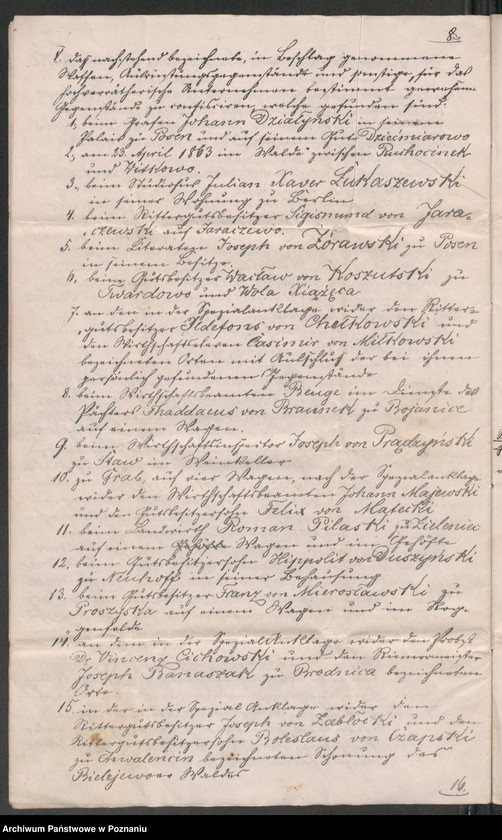 8.
V. daß nachstehend bezeichnete, in Beschlag genommene
Waffen, Ausrüstungsgegenstände und sonstige, für das
hochverrätherische Unternehmen bestimmt gewesene
Gegenstände zu confisciren, welche gefunden sind:
1, beim Grafen Johann Działyński in seinem
Palais zu Posen und auf seinem Gute Dziećmiarowo
2, am 23. April 1863 im Walde zwischen Ruchocinek
und Witkowo.
3, beim Studiosus Julian Xaver Lukaszewski
in seiner Wohnung zu Berlin
4. beim Rittergutsbesitzer Sigismund von Jara-
czewski auf Jaraczewo.
5. beim Literaten Joseph von Zórawski zu Posen
in seinem Besitze.
6, beim Gutsbesitzer Wacław von Koszutski zu
Twardowo und Wola Xiążęca
7. an den in der Spezialanklage wider den Ritter-
gutsbesitzer Ildefons von Chełkowski und
den Wirthschaftseleven Casimir von Miłkowski
bezeichneten Orten mit Ausschluß der bei ihnen
persönlich gefundenen Gegenstände
8. beim Wirthschaftsbeamten Benge im Dienste des
Pächters Thaddaeus von Braunek zu Bojanice
auf einem Wagen.
9. beim Wirthschaftsinspector Joseph von Prądzyński
zu Staw im Weinkeller
10. zu Grab, auf vier Wagen, nach der Spezialanklage
wider den Wirthschaftsbeamten Johann Majewski
und den Gutsbesitzersohn Felix von Matecki
11. beim Landwirth Roman Pilaski zu Zieleniec
auf einem Wagen und im Gehöfte
12, beim Gutsbesitzersohn Hippolit von Duszyński
zu Neuhoff in seiner Behausung
13. beim Gutsbesitzer Franz von Mierosławski zu
Proszyska auf einem Wagen und im Rog-
genfelde
14. an dem in der Spezialanklage wider den Probst
Dr. Vincenz Cichowski und den Riemermeister
Joseph Banaszak zu Brodnica bezeichneten
Orte.
15. in der in der Spezial Anklage wider den
Rittergutsbesitzer Joseph von Zabłocki und den
Rittergutsbesitzersohn Boleslaus von Czapski
zu Chwalencin bezeichneten Schonung des
Bielejewoer Waldes
16.
Archiwum Państwowe w Poznaniu